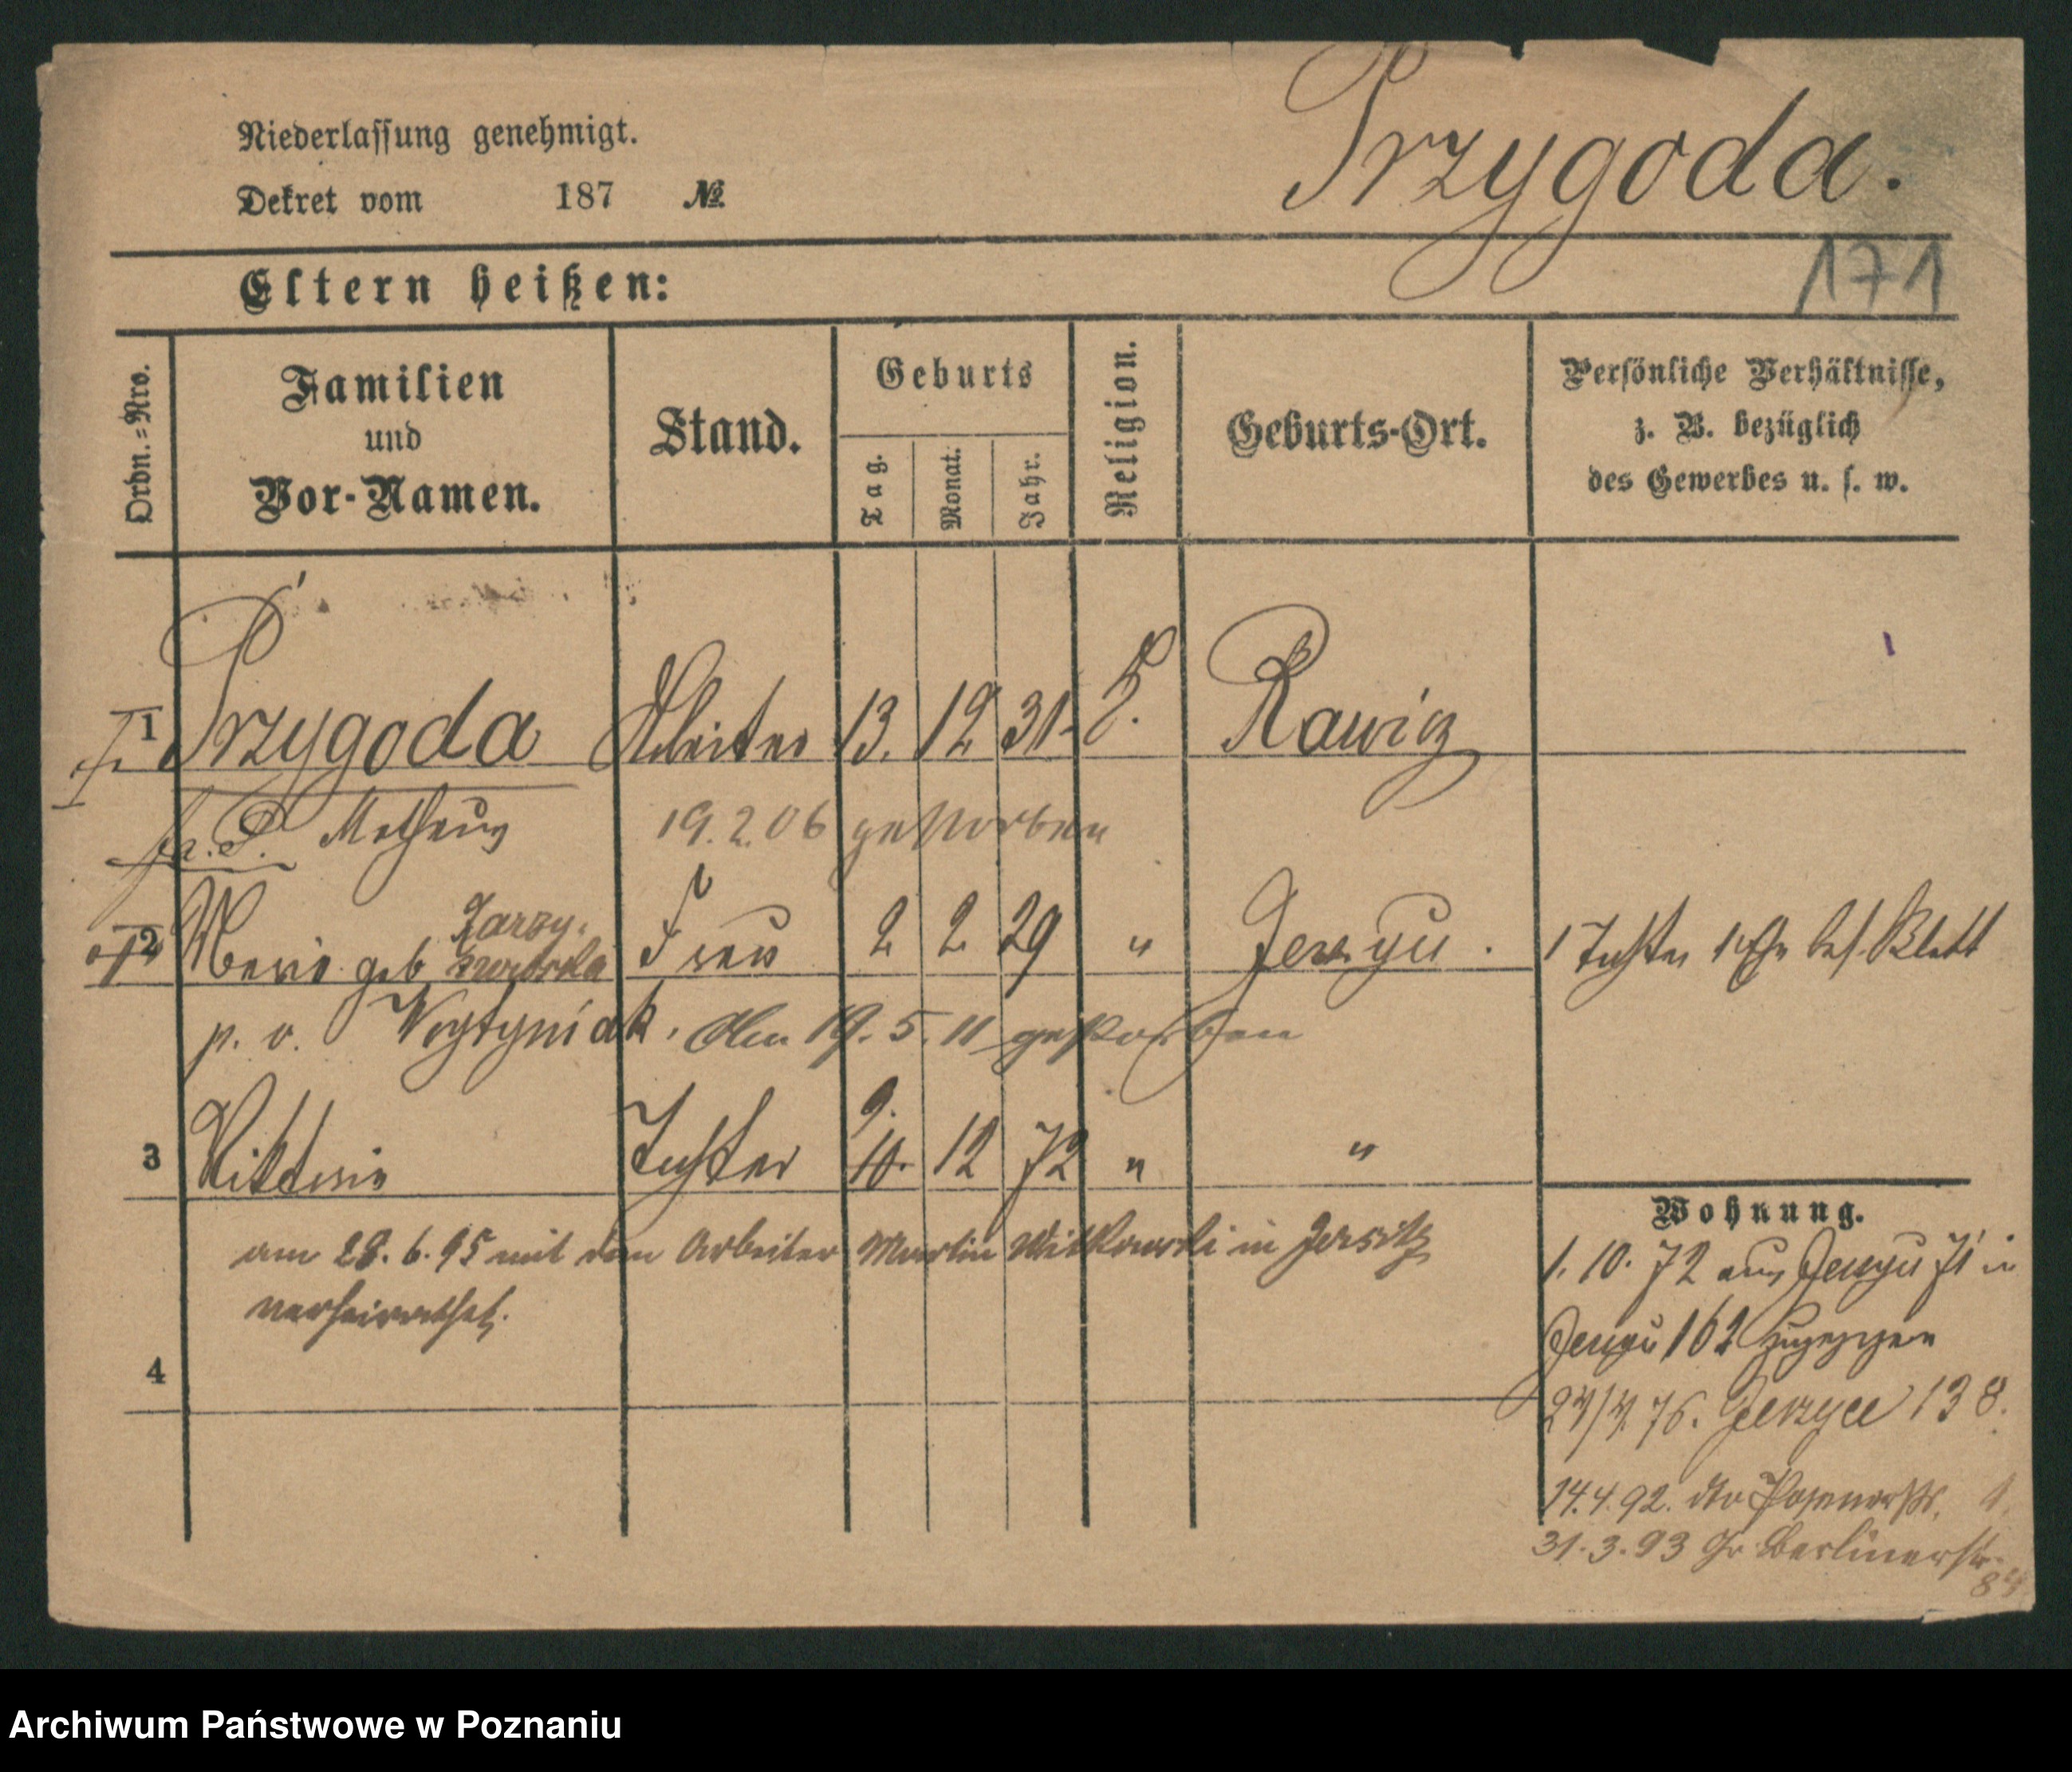 Niederlassung genehmigt.
Przygoda.
Dekret vom 187 №
171
Eltern heißen:
Ordn.=Nro.
Familien
und
Vor-Namen.
Stand.
Geburts
Tag.
Monat.
Jahr.
Religion.
Geburts-Ort.
Persönliche Verhältnisse,
z. B. bezüglich
des Gewerbes u. s. w.
1 Przygoda Arbeiter 13. 12 31 Rawicz
Matheus 19.2.06 gestorben
2 geb Frau 2 2 29 " 1 Tochter 1 Ehe bes. Blatt
p. v. am 19. 5. 11 gestorben
9.
3 Viktoria Tochter 10. 12 72 " "
Wohnung.
am 28. 6. 95 mit dem Arbeiter Martin Witkowski in Jersitz
verheirathet.
1. 10. 72 aus 71 in
162 zugezogen
4
76. Jerzyce 138.
14.4.92. dto Posenerstr. 1.
31.3.93 Gr Berlinerstr.
Archiwum Państwowe w Poznaniu